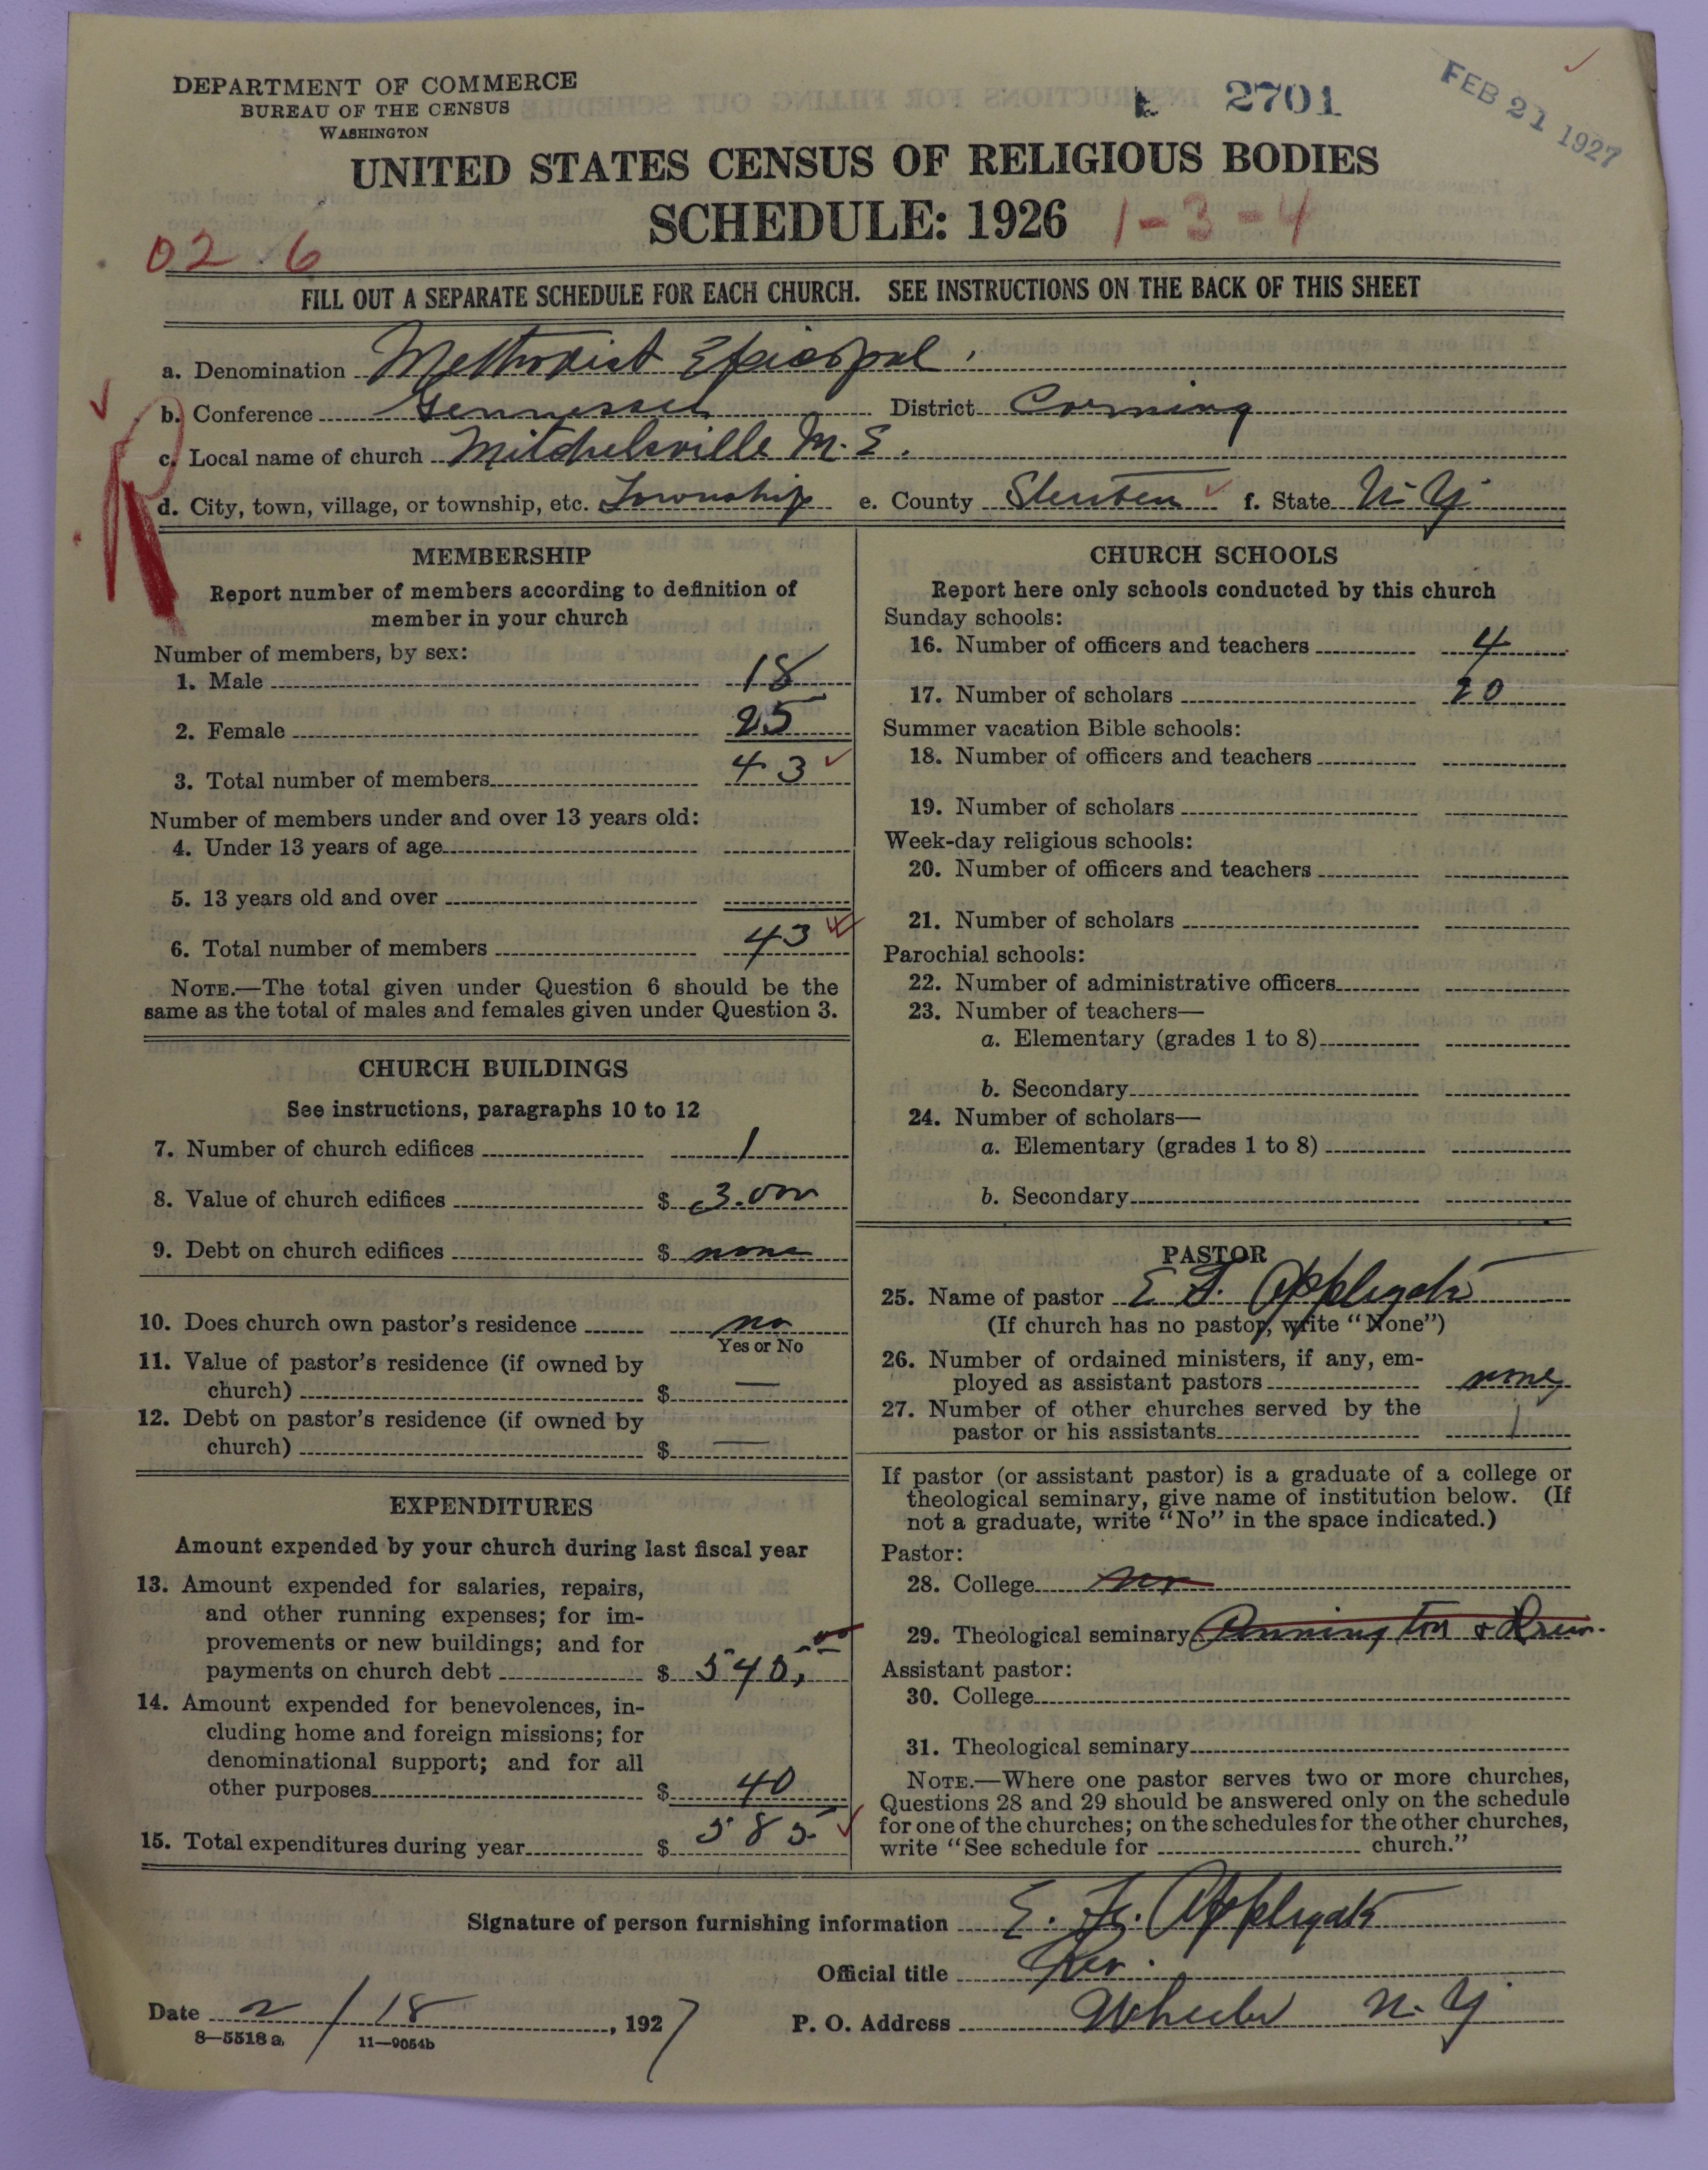 DEPARTMENT OF COMMERCE
BUREAU OF THE CENSUS
WASHINGTON
2701
FEB 21 1927
UNITED STATES CENSUS OF RELIGIOUS BODIES
SCHEDULE: 1926
1-3-4
02 6
FILL OUT A SEPARATE SCHEDULE FOR EACH CHURCH. SEE INSTRUCTIONS ON THE BACK OF THIS SHEET
a. Denomination Methodist Episcopal
b. Conference Gennessee District Corning
c. Local name of church Mitchelsville M. E.
d. City, town, village, or township, etc. Township e. County Steuben f. State N. Y.
R
MEMBERSHIP
Report number of members according to definition of
member in your church
Number of members, by sex:
1. Male 18
2. Female 25
3. Total number of members 43
Number of members under and over 13 years old:
4. Under 13 years of age
5. 13 years old and over
6. Total number of members 43
NOTE.—The total given under Question 6 should be the
same as the total of males and females given under Question 3.
CHURCH BUILDINGS
See instructions, paragraphs 10 to 12
7. Number of church edifices 1
8. Value of church edifices $ 3.000
9. Debt on church edifices $ none
10. Does church own pastor's residence no
Yes or No
11. Value of pastor's residence (if owned by
church) $ —
12. Debt on pastor's residence (if owned by
church) $ —
EXPENDITURES
Amount expended by your church during last fiscal year
13. Amount expended for salaries, repairs,
and other running expenses; for im-
provements or new buildings; and for
payments on church debt $ 545.00
14. Amount expended for benevolences, in-
cluding home and foreign missions; for
denominational support; and for all
other purposes $ 40
15. Total expenditures during year $ 585
CHURCH SCHOOLS
Report here only schools conducted by this church
Sunday schools:
16. Number of officers and teachers 4
17. Number of scholars 20
Summer vacation Bible schools:
18. Number of officers and teachers
19. Number of scholars
Week-day religious schools:
20. Number of officers and teachers
21. Number of scholars
Parochial schools:
22. Number of administrative officers
23. Number of teachers—
a. Elementary (grades 1 to 8)
b. Secondary
24. Number of scholars—
a. Elementary (grades 1 to 8)
b. Secondary
PASTOR
25. Name of pastor E. F. Applegate
(If church has no pastor, write "None")
26. Number of ordained ministers, if any, em-
ployed as assistant pastors none
27. Number of other churches served by the
pastor or his assistants 1
If pastor (or assistant pastor) is a graduate of a college or
theological seminary, give name of institution below. (If
not a graduate, write "No" in the space indicated.)
Pastor:
28. College no
29. Theological seminary Pennington & Drew.
Assistant pastor:
30. College
31. Theological seminary
NOTE.—Where one pastor serves two or more churches,
Questions 28 and 29 should be answered only on the schedule
for one of the churches; on the schedules for the other churches,
write "See schedule for church."
Signature of person furnishing information E. F. Applegate
Official title Rev.
Date 2/18, 1927 P. O. Address Wheeler N. Y.
8—5518 a 11—9054b